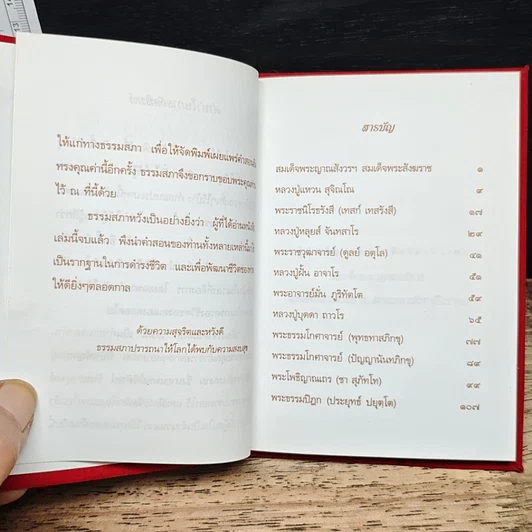 ให้แก่ทางธรรมสภา เพื่อให้จัดพิมพ์เผยแพร่คำสอนอัน
ทรงคุณค่านี้อีกครั้ง ธรรมสภาจึงขอกราบขอบพระคุณท่าน
ไว้ ณ ที่นี้ด้วย
ธรรมสภาหวังเป็นอย่างยิ่งว่า ผู้ที่ได้อ่านหนังสือ
เล่มนี้จบแล้ว พึงนำคำสอนของท่านทั้งหลายเหล่านี้
เป็นรากฐานในการดำรงชีวิต และเพื่อพัฒนาชีวิตของ
ให้ดียิ่งๆตลอดกาล
ด้วยความสุจริตและหวังดี
ธรรมสภาปรารถนาให้โลกได้พบกับความสงบสุข
สารบัญ
สมเด็จพระญาณสังวรฯ สมเด็จพระสังฆราช ๑
หลวงปู่แหวน สุจิณโณ ๙
พระราชนิโรธรังสี (เทสก์ เทสรังสี) ๑๗
หลวงปู่หลุยส์ จันทสาโร ๒๙
พระราชวุฒาจารย์ (ดูลย์ อตุโล) ๔๑
หลวงปู่ฝั้น อาจาโร ๕๑
พระอาจารย์มั่น ภูริทัตโต ๕๙
หลวงปู่บุดดา ถาวโร ๖๕
พระธรรมโกศาจารย์ (พุทธทาสภิกขุ) ๗๗
พระธรรมโกศาจารย์ (ปัญญานันทภิกขุ) ๘๙
พระโพธิญาณเถร (ชา สุภัทโท) ๙๙
พระธรรมปิฎก (ประยุทธ์ ปยุตฺโต) ๑๐๗